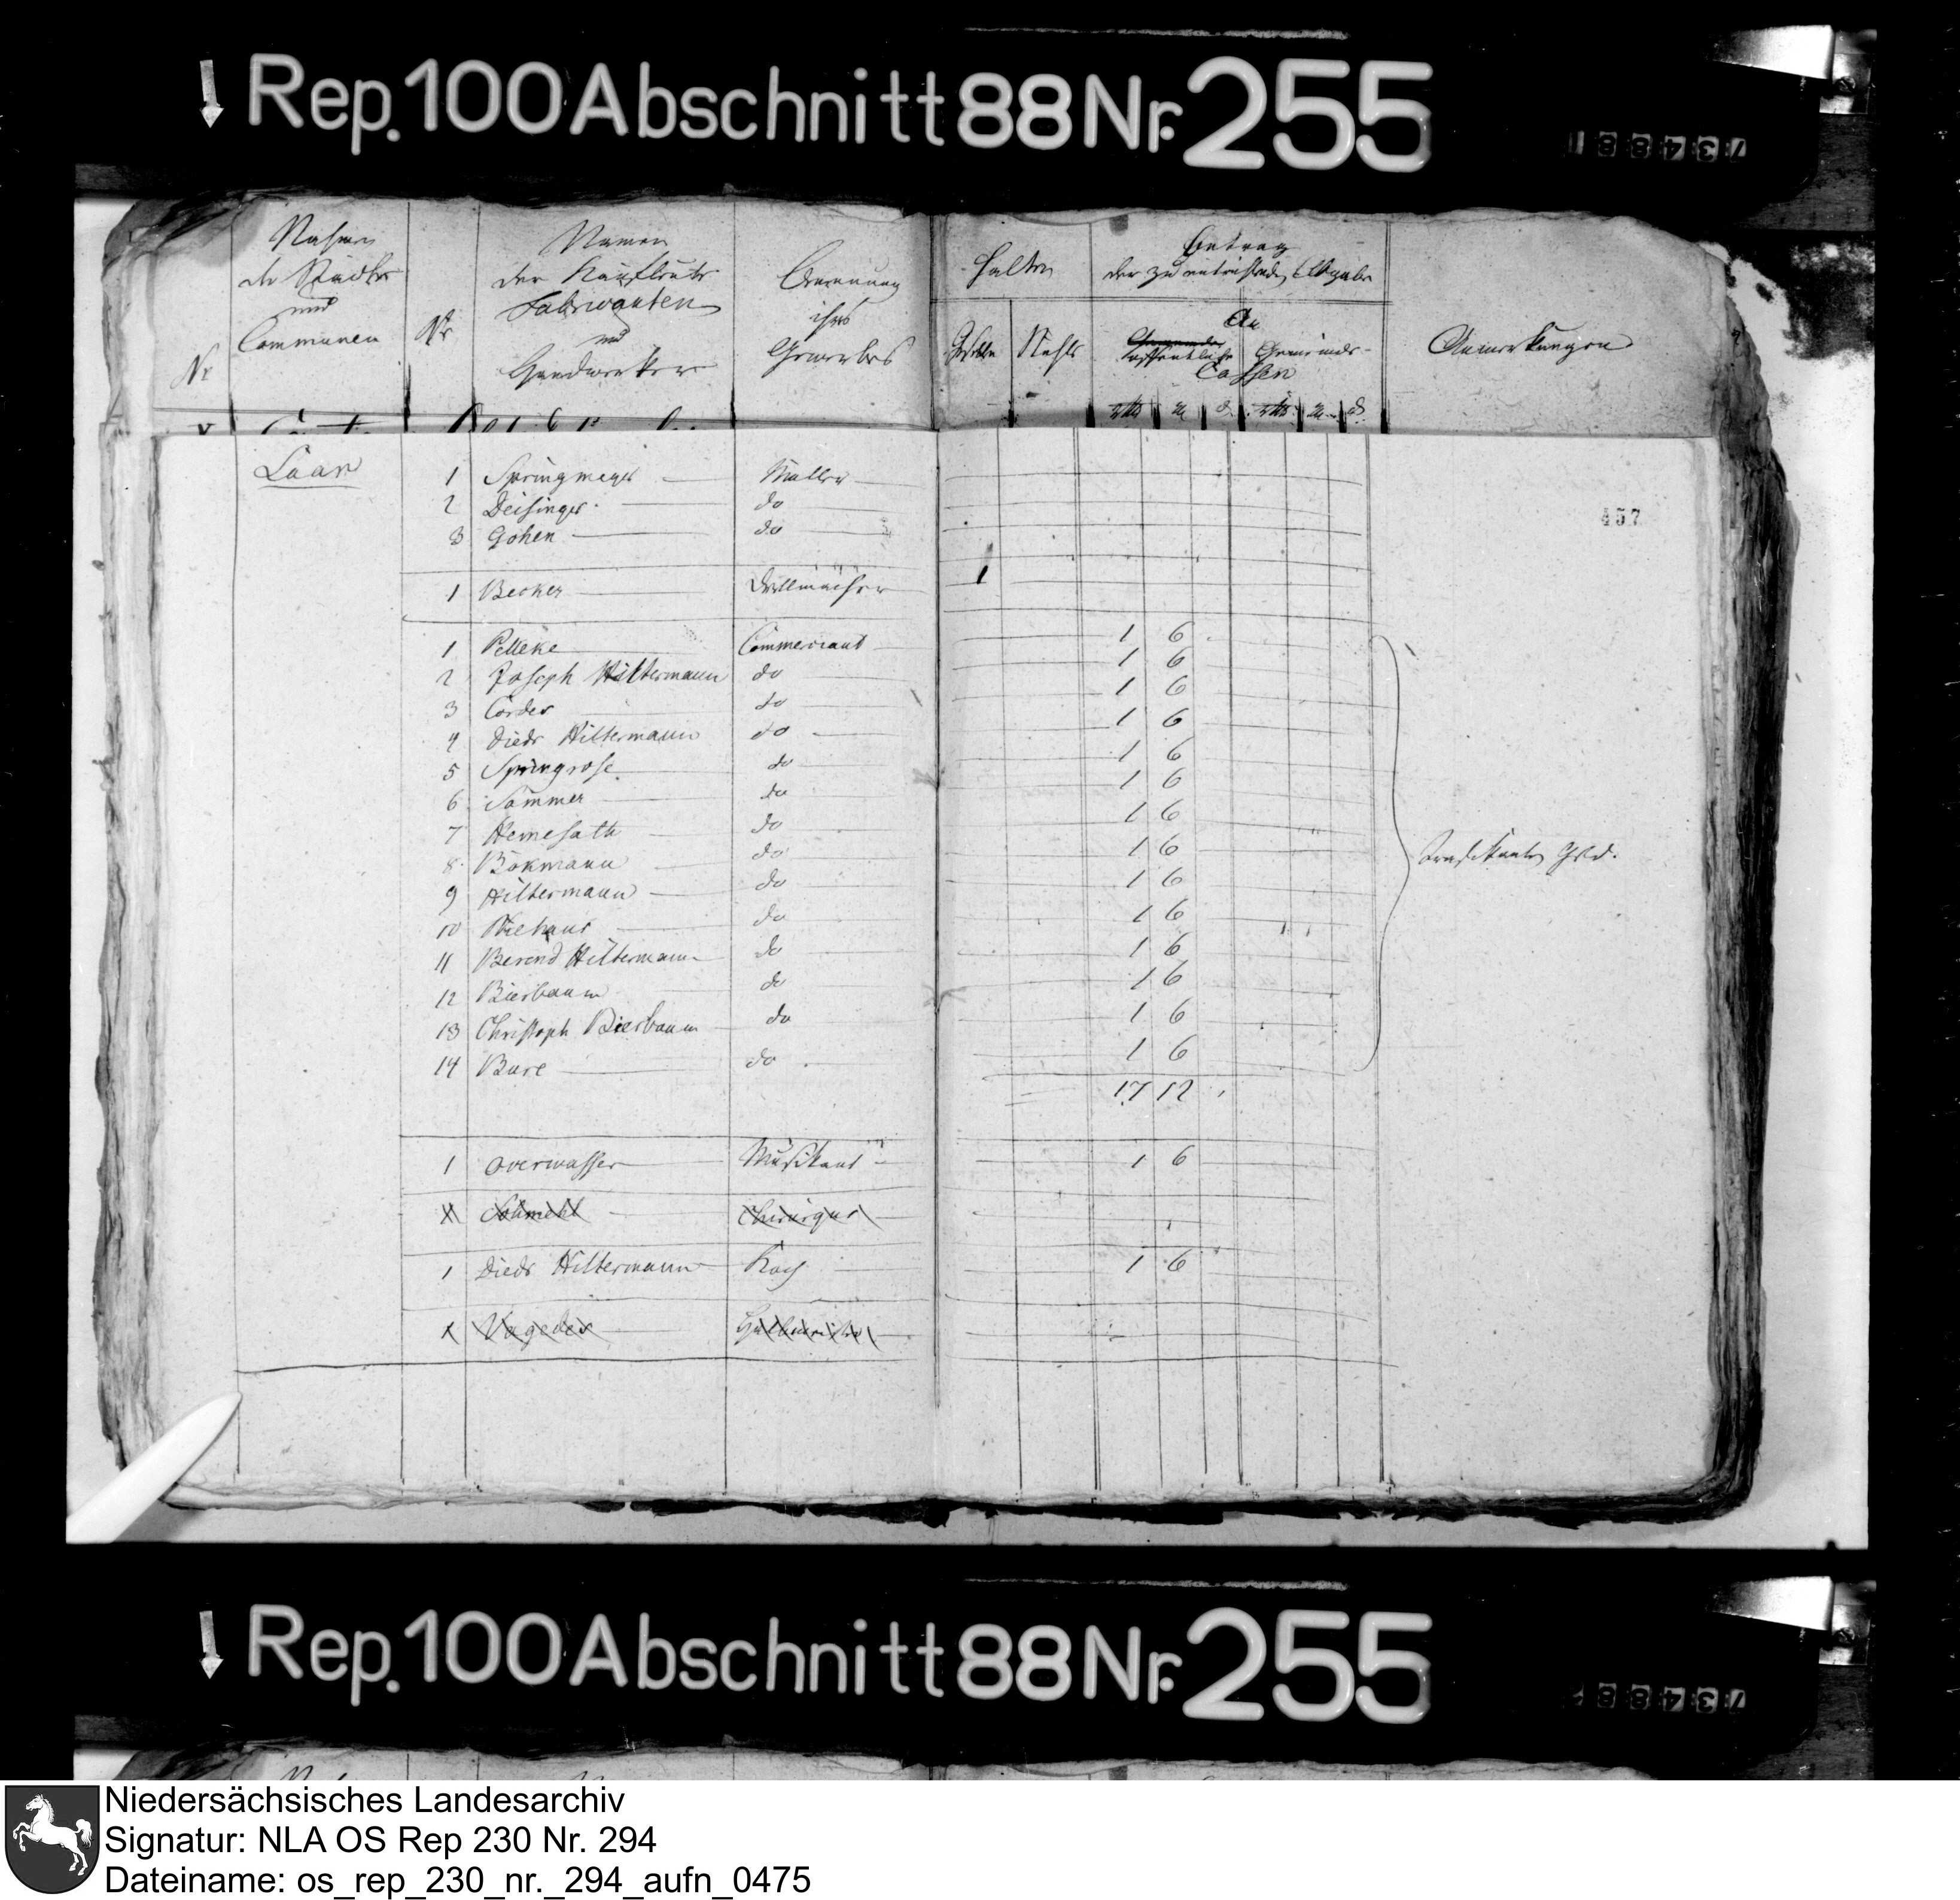 Rep. 100 Abschnitt 88 Nr. 255
734881
Nahmen der Städte und Communen
Nr
Namen der Kaufleute Fabricanten und Handwerker
Benennung ihres Gewerbes
Halten
Betrag der zu entrichtenden Abgabe
An
öffentliche Gemeinde-
Cassen
Anmerkungen
Laar
457
1 Springmeyer Müller
2 Deisinger do
3 Gohen do
1 Becker 1
1 Pelleke Commerciant 1 6
2 Joseph Hiltermann do 1 6
3 Cordes do 1 6
4 Diedr Hiltermann do 1 6
5 Springrose do 1 6
6 Sommer do 1 6
7 Hemesath do 1 6
8 Bökmann do 1 6
9 Hiltermann do 1 6
10 Niehaus do 1 6
11 Berend Hiltermann do 1 6
12 Bierbaum do 1 6
13 Christoph Bierbaum do 1 6
14 Bure do 1 6
17 12
1 Overwasser Musikant 1 6
Chirurgus
1 Diedr Hiltermann Koch 1 6
Vagedes
Rep. 100 Abschnitt 88 Nr. 255
Niedersächsisches Landesarchiv
Signatur: NLA OS Rep 230 Nr. 294
Dateiname: os_rep_230_nr._294_aufn_0475